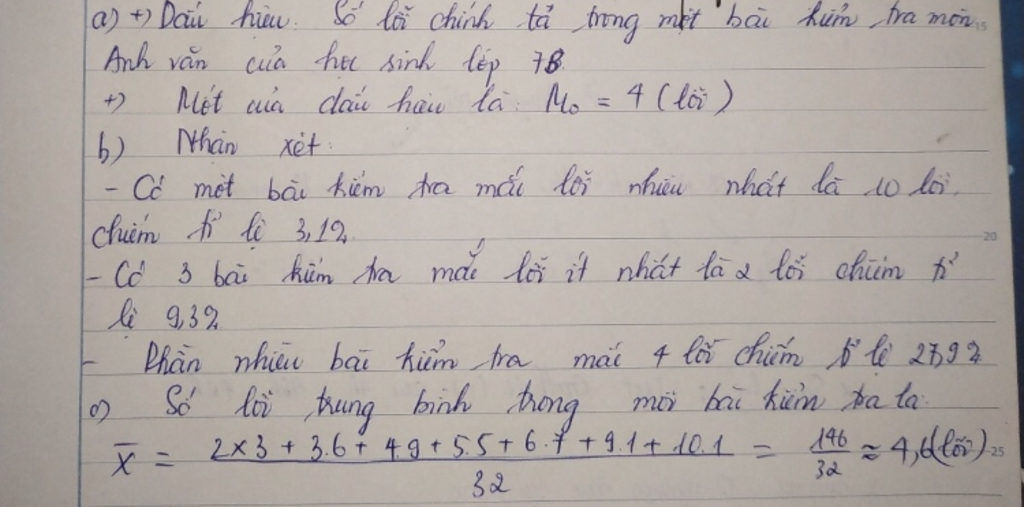 a) +) Dấu hiệu: Số lỗi chính tả trong một bài kiểm tra môn
Anh văn của học sinh lớp 7B
+) Mốt của dấu hiệu là: M₀ = 4 (lỗi)
b) Nhận xét:
- Có một bài kiểm tra mắc lỗi nhiều nhất là 10 lỗi,
chiếm tỉ lệ 3,1%
- Có 3 bài kiểm tra mắc lỗi ít nhất là 2 lỗi chiếm tỉ
lệ 9,3%
- Phần nhiều bài kiểm tra mắc 4 lỗi chiếm tỉ lệ 27,9%
c) Số lỗi trung bình trong mỗi bài kiểm tra là:
X̄ = (2x3 + 3.6 + 4.9 + 5.5 + 6.7 + 9.1 + 10.1) / 32 = 146/32 ≈ 4,6 (lỗi)
15
20
25